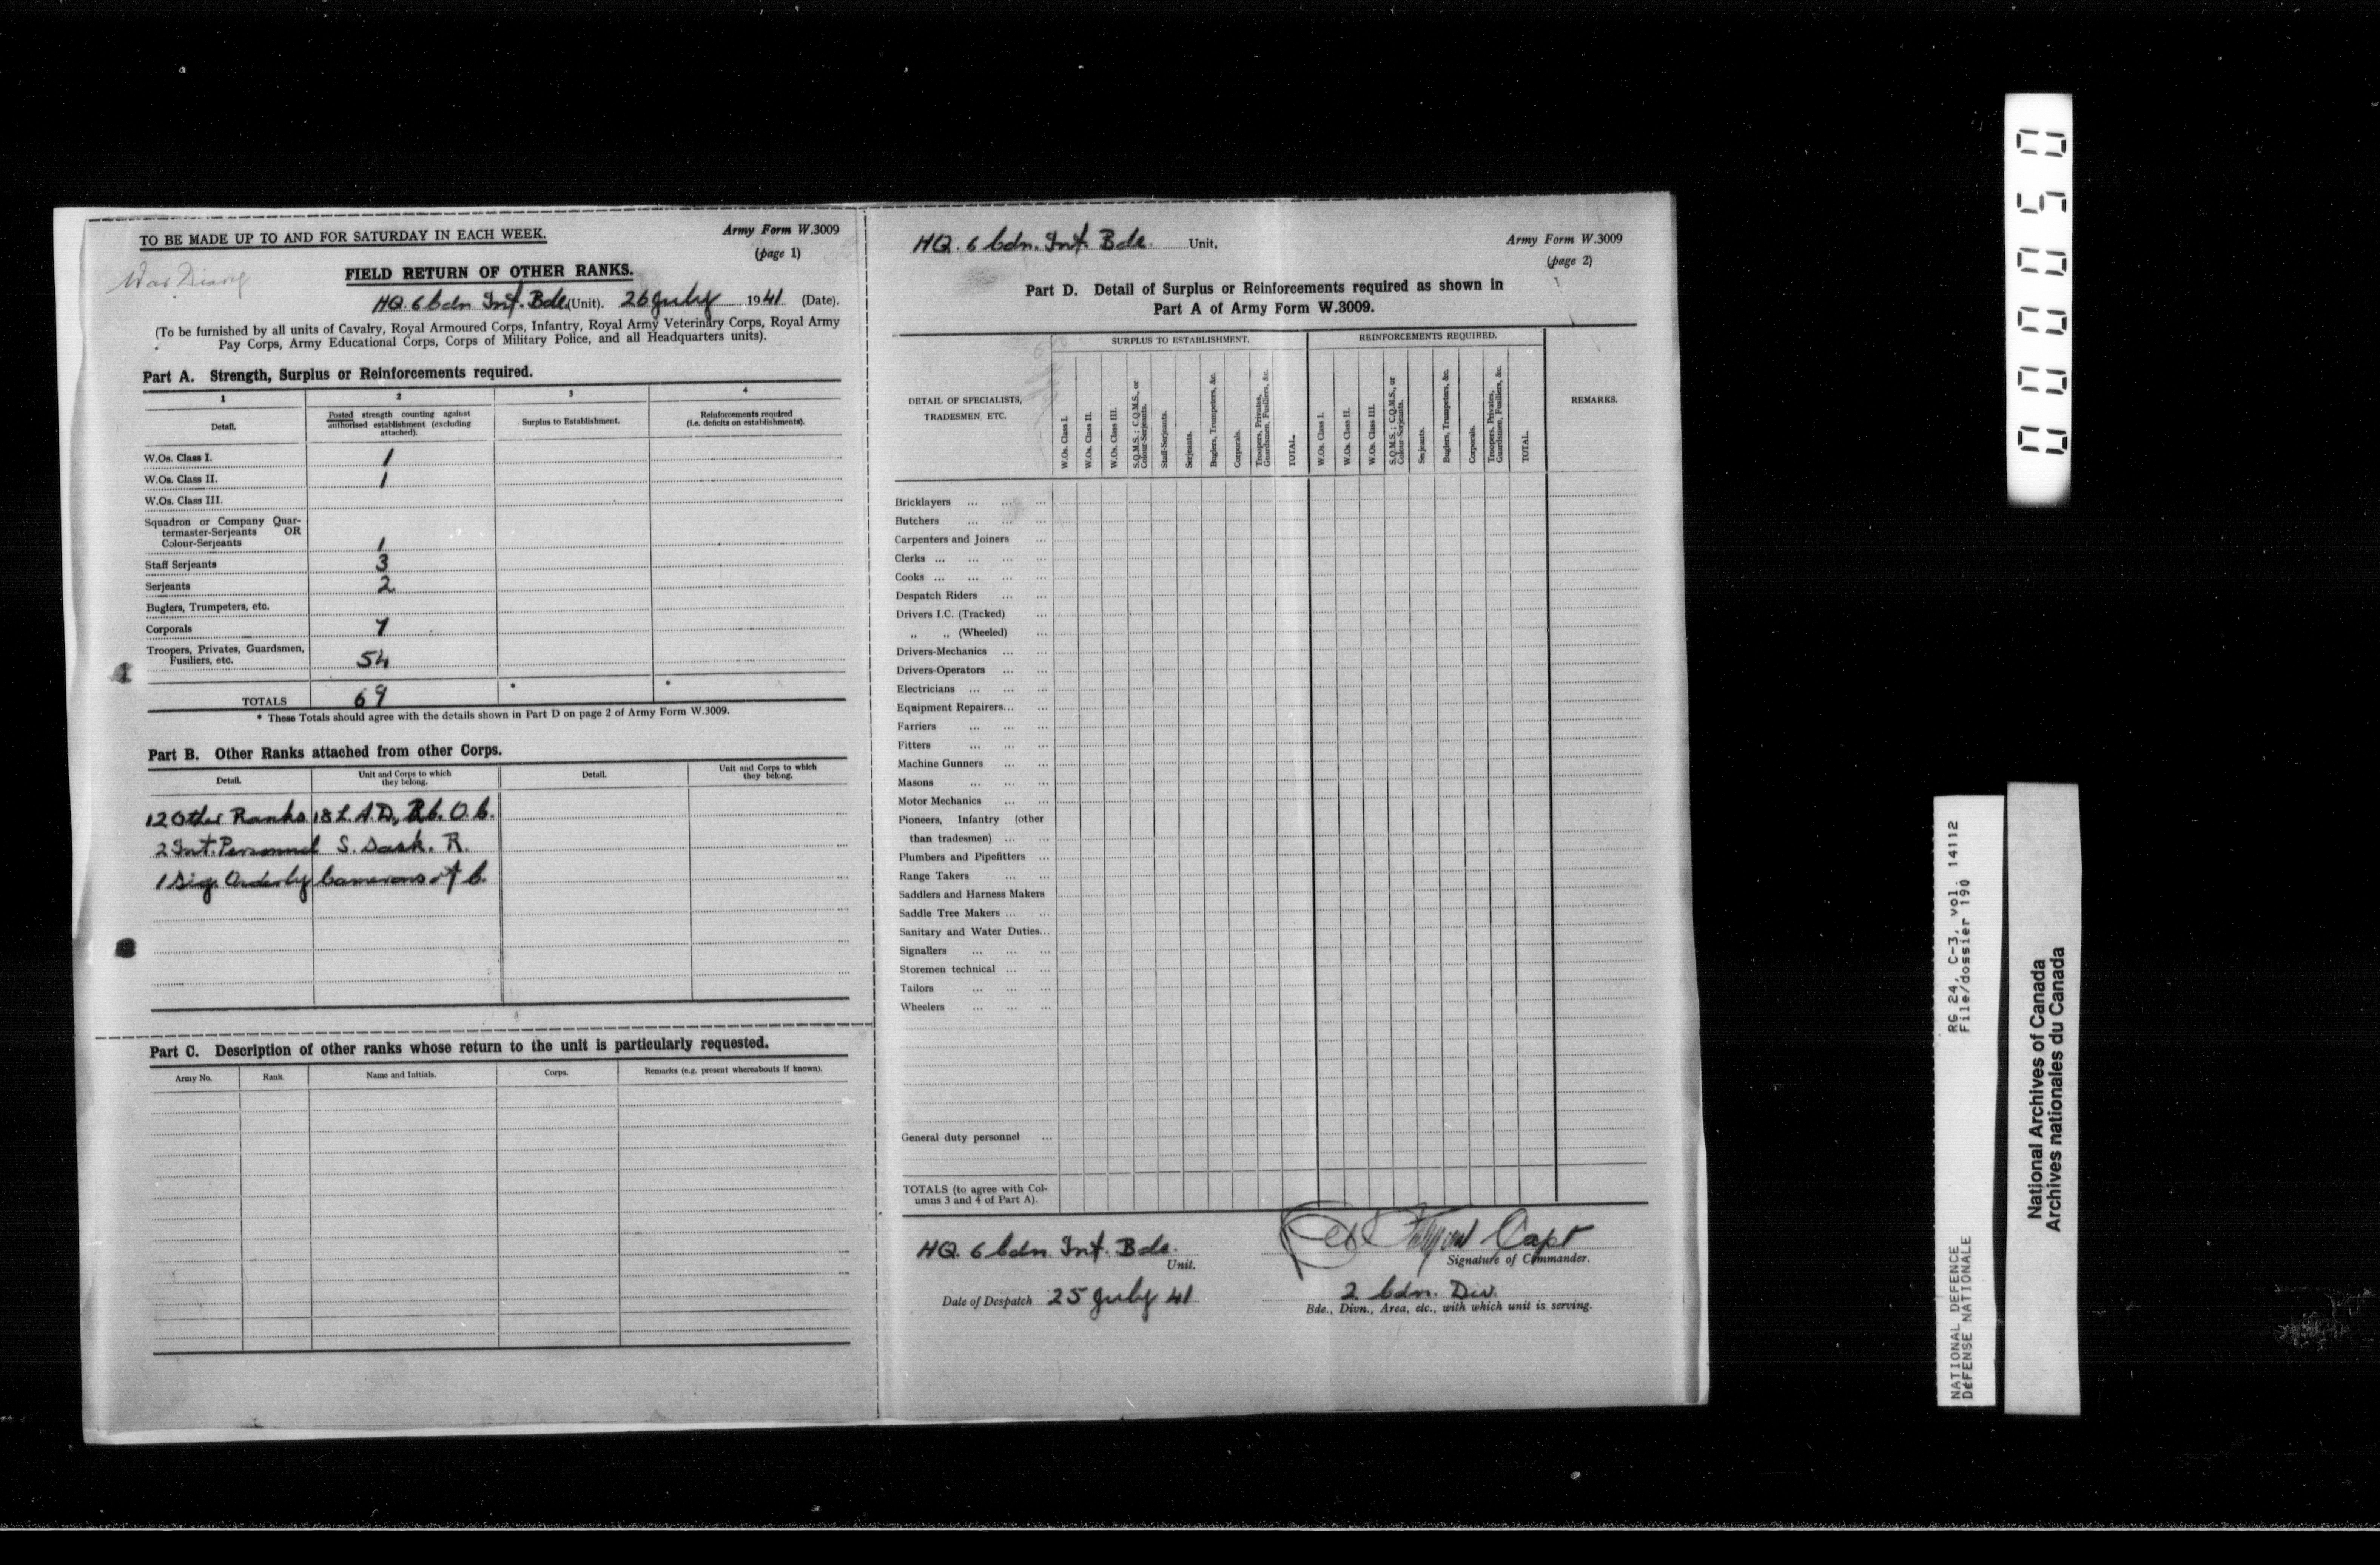 TO BE MADE UP TO AND FOR SATURDAY IN EACH WEEK.
Army Form W.3009
(page 1)
War Diary
FIELD RETURN OF OTHER RANKS.
HQ. 6 Cdn. Inf. Bde. (Unit). 26 July 1941 (Date).
(To be furnished by all units of Cavalry, Royal Armoured Corps, Infantry, Royal Army Veterinary Corps, Royal Army
Pay Corps, Army Educational Corps, Corps of Military Police, and all Headquarters units).
Part A. Strength, Surplus or Reinforcements required.
1 2 3 4
Detail. Posted strength counting against authorised establishment (excluding attached). Surplus to Establishment. Reinforcements required (i.e. deficits on establishments).
W.Os. Class I. 1
W.Os. Class II. 1
W.Os. Class III.
Squadron or Company Quar-
termaster-Serjeants OR
Colour-Serjeants 1
Staff Serjeants 3
Serjeants 2
Buglers, Trumpeters, etc.
Corporals 7
Troopers, Privates, Guardsmen,
Fusiliers, etc. 54
TOTALS 69 * *
* These Totals should agree with the details shown in Part D on page 2 of Army Form W.3009.
Part B. Other Ranks attached from other Corps.
Detail. Unit and Corps to which they belong. Detail. Unit and Corps to which they belong.
12 Other Ranks 18 L.A.D., R.C.O.C.
2 Int. Personnel S. Sask. R.
1 Sig. Orderly Camerons of C.
Part C. Description of other ranks whose return to the unit is particularly requested.
Army No. Rank. Name and Initials. Corps. Remarks (e.g. present whereabouts if known).
HQ. 6 Cdn. Inf. Bde. Unit.
Army Form W.3009
(page 2)
Part D. Detail of Surplus or Reinforcements required as shown in
Part A of Army Form W.3009.
SURPLUS TO ESTABLISHMENT. REINFORCEMENTS REQUIRED.
DETAIL OF SPECIALISTS,
TRADESMEN, ETC.
W.Os. Class I.
W.Os. Class II.
W.Os. Class III.
S.Q.M.S.; C.Q.M.S., or Colour-Serjeants.
Staff-Serjeants.
Serjeants.
Buglers, Trumpeters, &c.
Corporals.
Troopers, Privates, Guardsmen, Fusiliers, &c.
TOTAL.
W.Os. Class I.
W.Os. Class II.
W.Os. Class III.
S.Q.M.S.; C.Q.M.S., or Colour-Serjeants.
Serjeants.
Buglers, Trumpeters, &c.
Corporals.
Troopers, Privates, Guardsmen, Fusiliers, &c.
TOTAL.
REMARKS.
Bricklayers ... ... ...
Butchers ... ... ...
Carpenters and Joiners ...
Clerks ... ... ... ...
Cooks ... ... ... ...
Despatch Riders ... ...
Drivers I.C. (Tracked) ...
„ „ (Wheeled) ...
Drivers-Mechanics ... ...
Drivers-Operators ... ...
Electricians ... ... ...
Equipment Repairers... ...
Farriers ... ... ...
Fitters ... ... ...
Machine Gunners ... ...
Masons ... ... ...
Motor Mechanics ... ...
Pioneers, Infantry (other
than tradesmen) ... ...
Plumbers and Pipefitters ...
Range Takers ... ...
Saddlers and Harness Makers
Saddle Tree Makers ... ...
Sanitary and Water Duties...
Signallers ... ... ...
Storemen technical ... ...
Tailors ... ... ...
Wheelers ... ... ...
General duty personnel ...
TOTALS (to agree with Col-
umns 3 and 4 of Part A).
HQ. 6 Cdn. Inf. Bde.
Unit.
Capt
Signature of Commander.
Date of Despatch 25 July 41
2 Cdn. Div.
Bde., Divn., Area, etc., with which unit is serving.
000050
NATIONAL DEFENCE RG 24, C-3, vol. 14112
DÉFENSE NATIONALE File/dossier 190
National Archives of Canada
Archives nationales du Canada